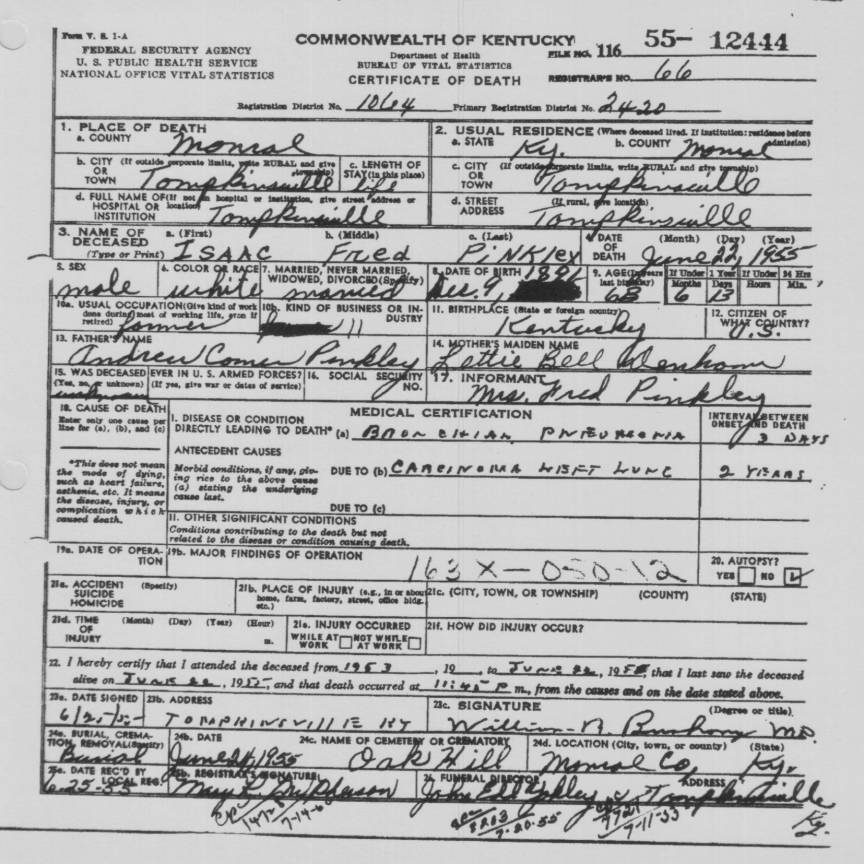 Form V. S. 1-A
FEDERAL SECURITY AGENCY
U. S. PUBLIC HEALTH SERVICE
NATIONAL OFFICE VITAL STATISTICS
COMMONWEALTH OF KENTUCKY
Department of Health
BUREAU OF VITAL STATISTICS
CERTIFICATE OF DEATH
FILE NO. 116 55- 12444
REGISTRAR'S NO. 66
Registration District No. 1064 Primary Registration District No. 2420
1. PLACE OF DEATH
a. COUNTY Monroe
2. USUAL RESIDENCE (Where deceased lived. If institution: residence before admission)
a. STATE Ky. b. COUNTY Monroe
b. CITY (If outside corporate limits, write RURAL and give township) OR TOWN Tompkinsville
c. LENGTH OF STAY (in this place) life
c. CITY (If outside corporate limits, write RURAL and give township) OR TOWN Tompkinsville
d. FULL NAME OF (If not in hospital or institution, give street address or location) HOSPITAL OR INSTITUTION Tompkinsville
d. STREET ADDRESS (If rural, give location) Tompkinsville
3. NAME OF DECEASED (Type or Print) a. (First) ISAAC b. (Middle) Fred c. (Last) PiNKley
4. DATE OF DEATH (Month) (Day) (Year) June 22, 1955
5. SEX male
6. COLOR OR RACE white
7. MARRIED, NEVER MARRIED, WIDOWED, DIVORCED (Specify) married
8. DATE OF BIRTH Dec. 9, 1891
9. AGE (In years last birthday) 63 If Under 1 Year Months 6 Days 13 If Under 24 Hrs Hours Min.
10a. USUAL OCCUPATION (Give kind of work done during most of working life, even if retired) farmer
10b. KIND OF BUSINESS OR INDUSTRY "
11. BIRTHPLACE (State or foreign country) Kentucky
12. CITIZEN OF WHAT COUNTRY? U.S.
13. FATHER'S NAME Andrew Comer Pinkley
14. MOTHER'S MAIDEN NAME Lettie Bell Denham
15. WAS DECEASED EVER IN U. S. ARMED FORCES? (Yes, no, or unknown) (If yes, give war or dates of service) unknown
16. SOCIAL SECURITY NO.
17. INFORMANT Mrs. Fred Pinkley
18. CAUSE OF DEATH
Enter only one cause per line for (a), (b), and (c)
MEDICAL CERTIFICATION
INTERVAL BETWEEN ONSET AND DEATH
I. DISEASE OR CONDITION DIRECTLY LEADING TO DEATH* (a) BRONCHIAL PNEUMONIA 3 DAYS
*This does not mean the mode of dying, such as heart failure, asthenia, etc. It means the disease, injury, or complication which caused death.
ANTECEDENT CAUSES
Morbid conditions, if any, giving rice to the above cause (a) stating the underlying cause last.
DUE TO (b) CARCINOMA LEFT LUNG 2 YEARS
DUE TO (c)
II. OTHER SIGNIFICANT CONDITIONS
Conditions contributing to the death but not related to the disease or condition causing death.
19a. DATE OF OPERATION
19b. MAJOR FINDINGS OF OPERATION
163 X-050-12
20. AUTOPSY? YES NO
21a. ACCIDENT SUICIDE HOMICIDE (Specify)
21b. PLACE OF INJURY (e.g., in or about home, farm, factory, street, office bldg. etc.)
21c. (CITY, TOWN, OR TOWNSHIP) (COUNTY) (STATE)
21d. TIME OF INJURY (Month) (Day) (Year) (Hour) m.
21e. INJURY OCCURRED WHILE AT WORK NOT WHILE AT WORK
21f. HOW DID INJURY OCCUR?
22. I hereby certify that I attended the deceased from 1953, 19 , to JUNE 22, 1955, that I last saw the deceased
alive on JUNE 22, 1955, and that death occurred at 11:45 P m., from the causes and on the date stated above.
23a. DATE SIGNED 6/25/55
23b. ADDRESS TOMPKINSVILLE KY
23c. SIGNATURE (Degree or title) William R. Bushong MD.
24a. BURIAL, CREMATION, REMOVAL (Specify) Burial
24b. DATE June 24, 1955
24c. NAME OF CEMETERY OR CREMATORY Oak Hill
24d. LOCATION (City, town, or county) (State) Monroe Co, Ky.
25a. DATE REC'D BY LOCAL REG. 6-25-55
25b. REGISTRAR'S SIGNATURE
26. FUNERAL DIRECTOR ADDRESS Tompkinsville Ky.
7-20-55